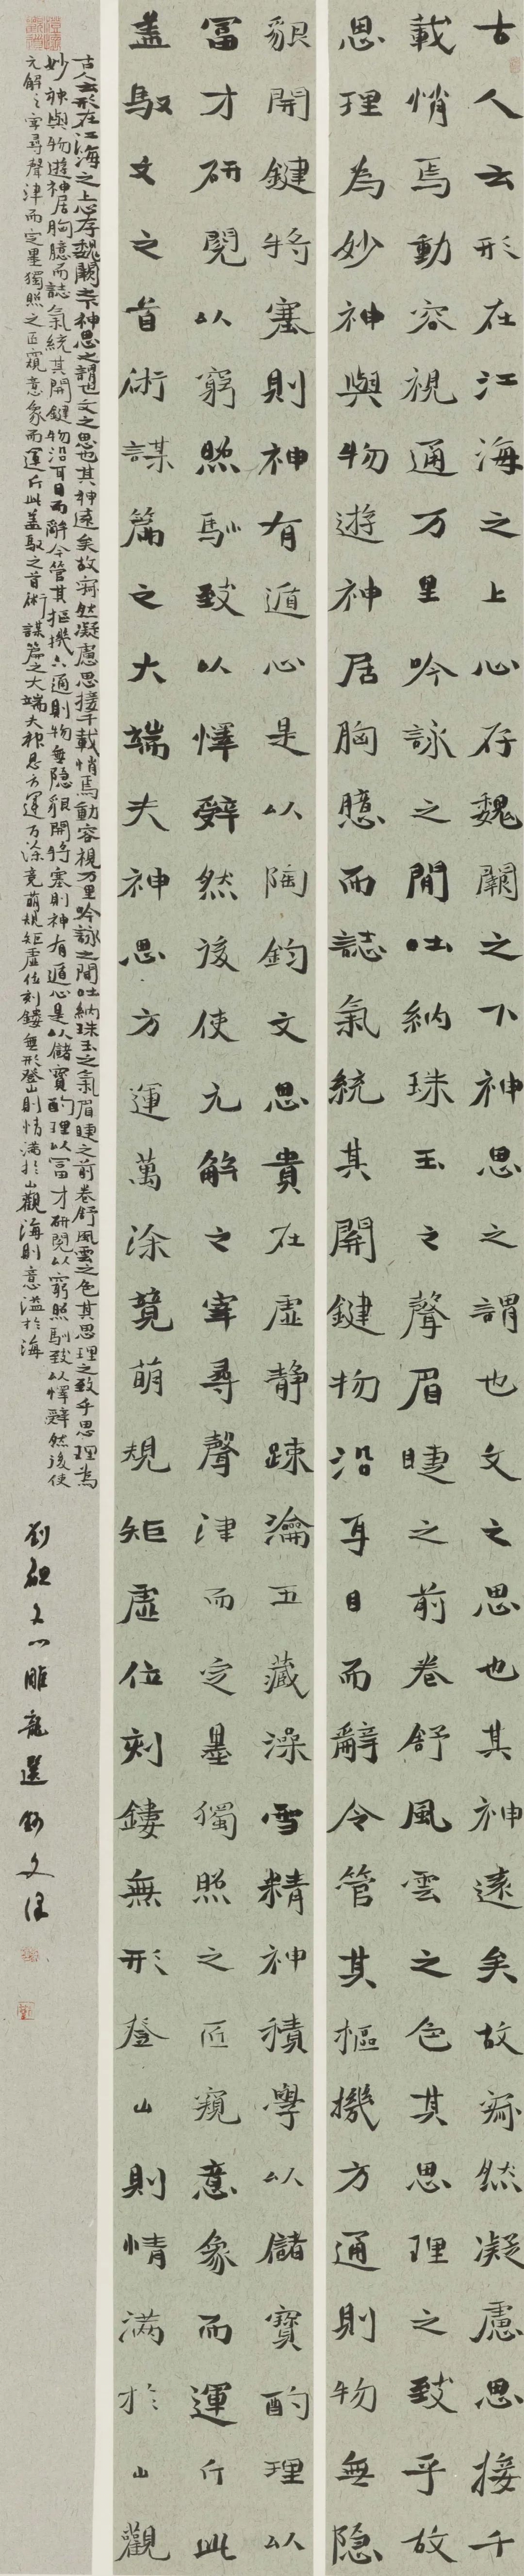 古人云形在江海之上心存魏闕之下神思之謂也文之思也其神遠矣故寂然凝慮思接千
載悄焉動容視通万里吟詠之間吐納珠玉之聲眉睫之前卷舒風雲之色其思理之致乎故
思理為妙神與物遊神居胸臆而誌氣統其關鍵物沿耳目而辭令管其樞機方通則物無隐
貌開鍵將塞則神有遁心是以陶鈞文思貴在虛静疎瀹五藏澡雪精神積學以儲寶酌理以
富才研閱以窮照馴致以懌辭然後使元解之宰尋聲津而定墨獨照之匠窺意象而運斤此
盖馭文之首術謀篇之大端夫神思方運萬涂竟萌規矩虛位刻鏤無形登山則情满於山觀
古人云形在江海之上心存魏闕之下神思之謂也文之思也其神遠矣故寂然凝慮思接千載悄焉動容視万里吟詠之間吐納珠玉之氣眉睫之前卷舒風雲之色其思理之致乎思理為
妙神與物遊神居胸臆而誌氣統其開鍵物沿耳目而辭令管其樞機六通則物無隐貌開將塞則神有遁心是以儲寶酌理以富才研閱以窮照馴致以懌辭然後使
元解之宰尋聲津而定墨獨照之匠窺意象而運斤此盖馭之首術謀篇之大端夫神思方運万涂竟萌規矩虛位刻鏤無形登山則情满於山觀海則意溢於海
劉勰文心雕龍選鈔文